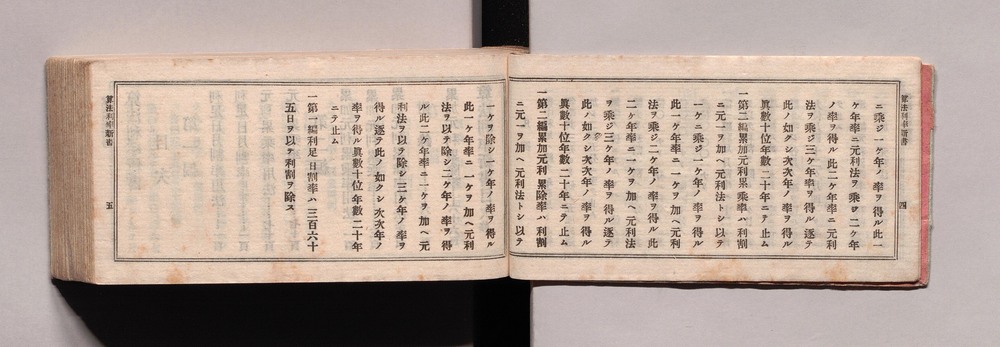 算法利率新書
四
ニ乘ジ一ケ年ノ率ヲ得ル此一
ケ年率ニ元利法ヲ乘ヲ二ケ年
ノ率ヲ得ル此二ケ年率ニ元利
法ヲ乘ジ三ケ年率ヲ得ル逐テ
此ノ如クシ次次年ノ率ヲ得ル
眞數十位年數二十年ニテ止ム
一第二編累加元利累乘率ハ利割
ニ元一ヲ加ヘ元利法トシ以テ
一ケニ乘ジ一ケ年ノ率ヲ得ル
此一ケ年率ニ一ケヲ加ヘ元利
法ヲ乘ジ二ケ年ノ率ヲ得ル此
二ケ年率ニ一ケヲ加ヘ元利法
ヲ乘ジ三ケ年ノ率ヲ得ル逐テ
此ノ如クシ次次年ノ率ヲ得ル
眞數十位年數二十年ニテ止ム
一第二編累加元利累除率ハ利割
ニ元一ヲ加ヘ元利法トシ以テ
一ケヲ除シ一ケ年ノ率ヲ得ル
此一ケ年率ニ一ケヲ加ヘ元利
法ヲ以テ除シ二ケ年ノ率ヲ得
ル此二ケ年率ニ一ケヲ加ヘ元
利法ヲ以テ除シ三ケ年ノ率ヲ
得ル逐テ此ノ如クシ次次年ノ
率ヲ得ル眞數十位年數二十年
ニテ止ム
一第一編利足日割率ハ三百六十
五日ヲ以テ利割ヲ除ス
算法利率新書
五